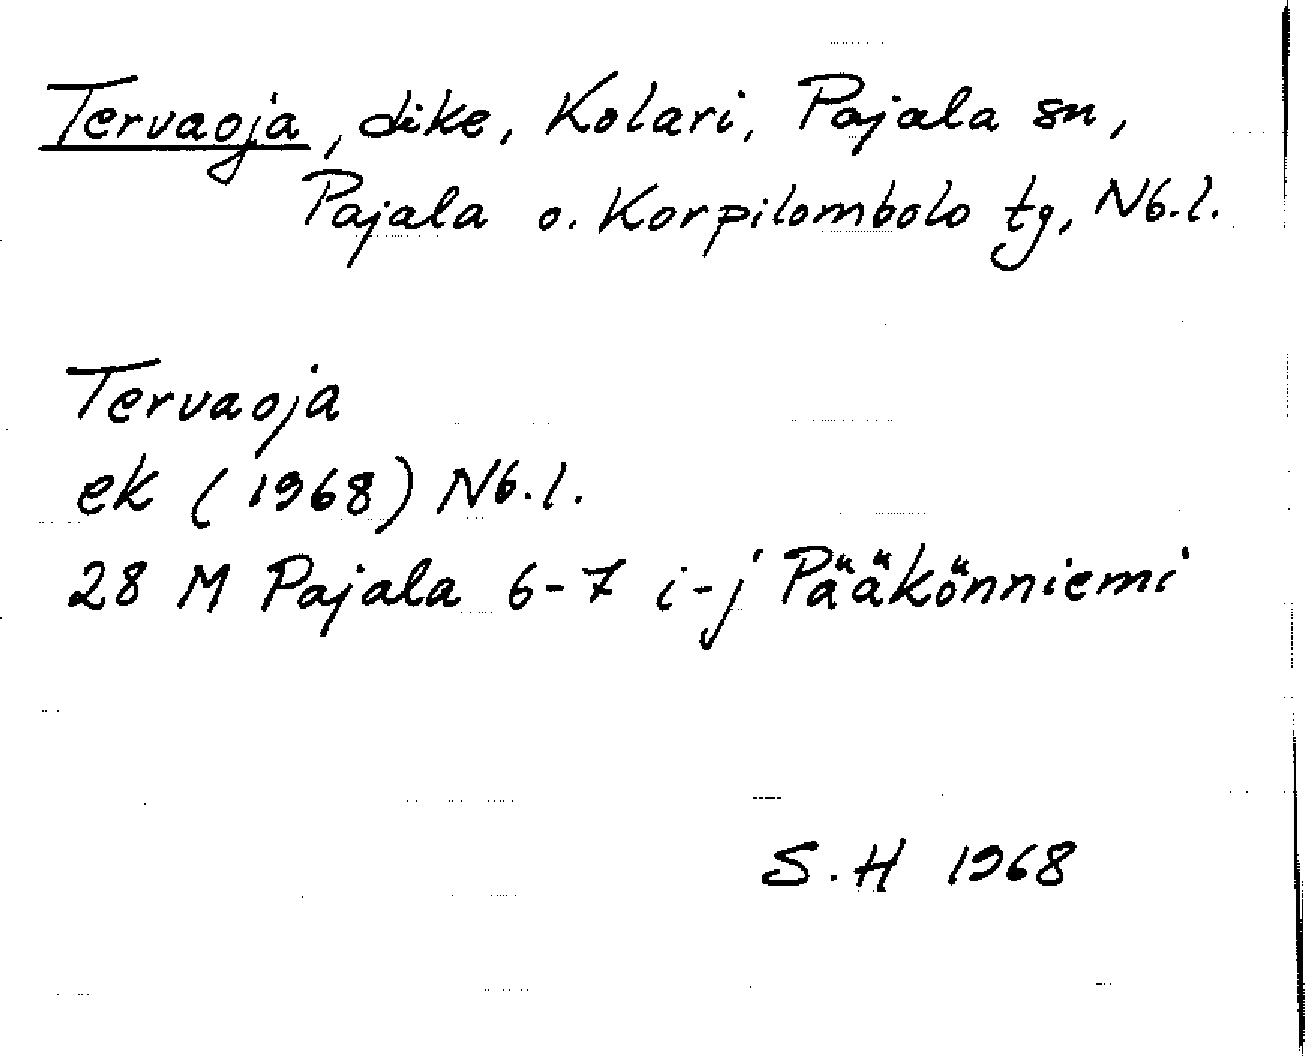 Tervaoja, dike, Kolari, Pajala sn,
Pajala o. Korpilombolo tg, Nb.l.
Tervaoja
ek (1968) Nb.l.
28 M Pajala 6-7 i-j Pääkönniemi
S.H 1968